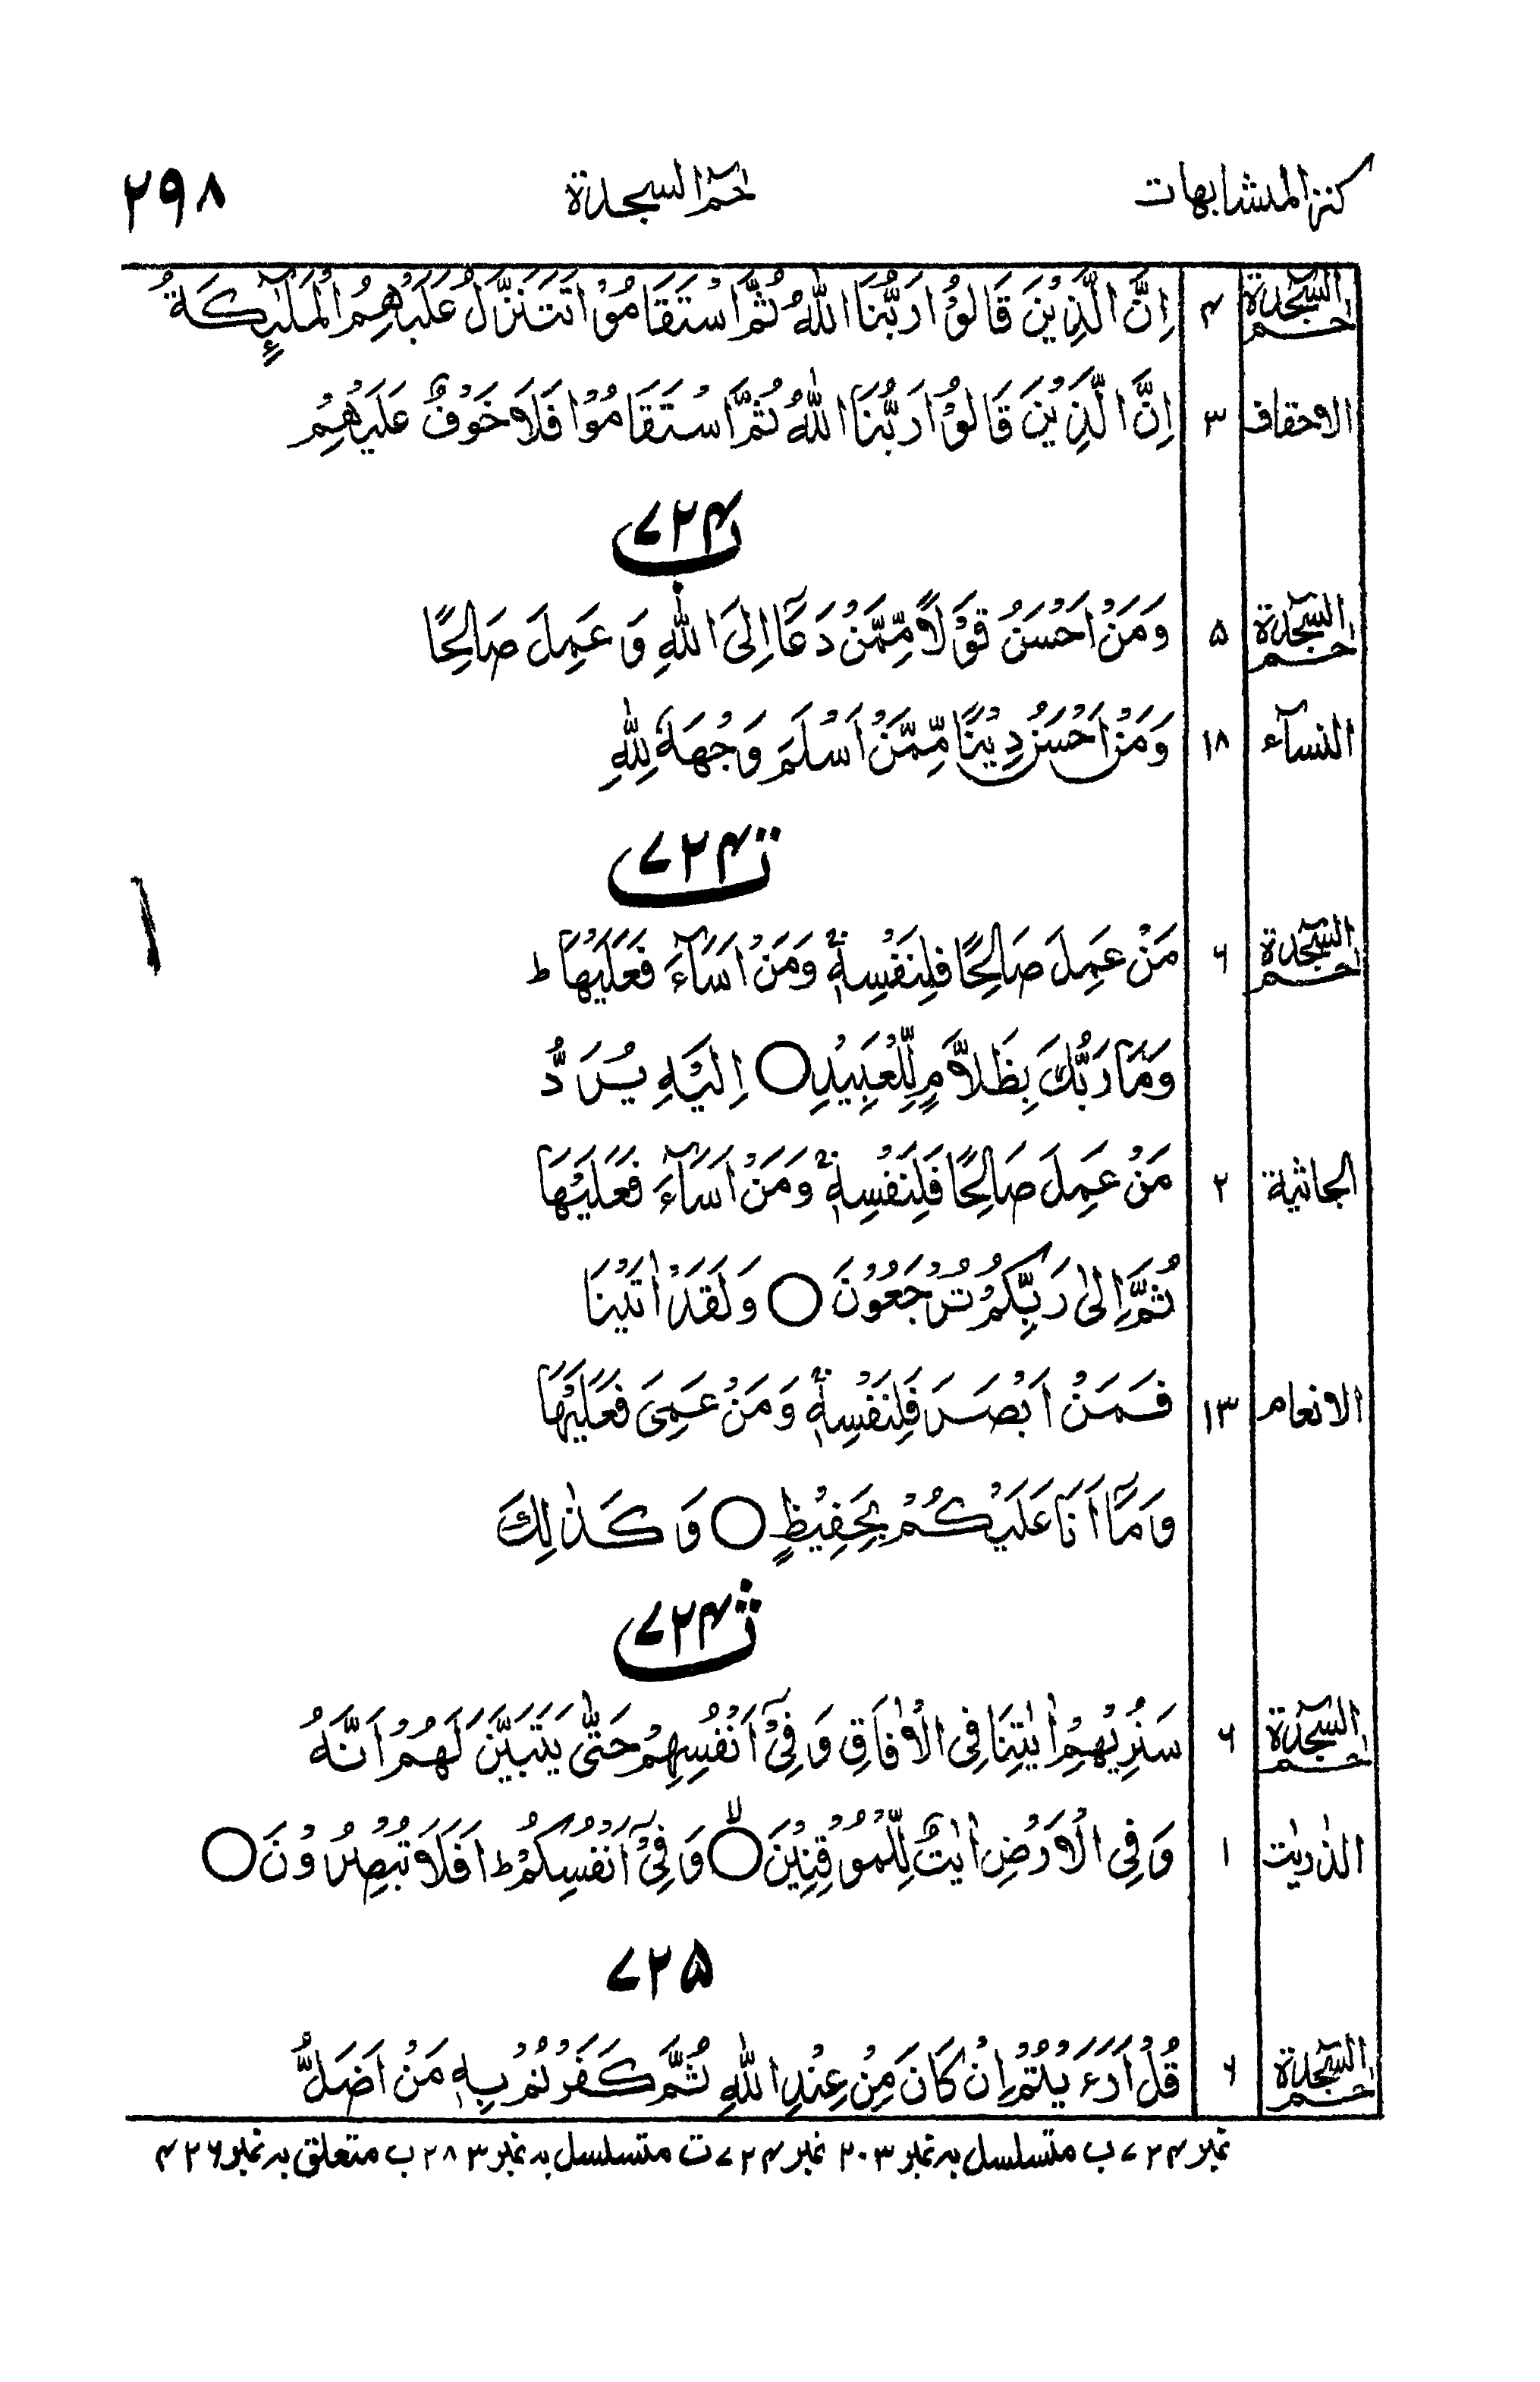 كنز المتشابهات حٰمٓ السجدة ٢٩٨
حٰمٓ السَّجْدَة ۴ اِنَّ الَّذِيْنَ قَالُوْا رَبُّنَا اللّٰهُ ثُمَّ اسْتَقَامُوْا تَتَنَزَّلُ عَلَيْهِمُ الْمَلٰٓئِكَةُ
الاحقاف ٣ اِنَّ الَّذِيْنَ قَالُوْا رَبُّنَا اللّٰهُ ثُمَّ اسْتَقَامُوْا فَلَا خَوْفٌ عَلَيْهِمْ
٧٢۴ ب
حٰمٓ السَّجْدَة ۵ وَمَنْ اَحْسَنُ قَوْلًا مِّمَّنْ دَعَآ اِلَى اللّٰهِ وَ عَمِلَ صَالِحًا
النسآء ١٨ وَمَنْ اَحْسَنُ دِيْنًا مِّمَّنْ اَسْلَمَ وَجْهَهٗ لِلّٰهِ
٧٢۴ ت
حٰمٓ السَّجْدَة ۶ مَنْ عَمِلَ صَالِحًا فَلِنَفْسِهٖ ۚ وَمَنْ اَسَآءَ فَعَلَيْهَا ؕ
وَمَا رَبُّكَ بِظَلَّامٍ لِّلْعَبِيْدِ ○ اِلَيْهِ يُرَدُّ
الجاثية ٢ مَنْ عَمِلَ صَالِحًا فَلِنَفْسِهٖ ۚ وَمَنْ اَسَآءَ فَعَلَيْهَا
ثُمَّ اِلٰى رَبِّكُمْ تُرْجَعُوْنَ ○ وَلَقَدْ اٰتَيْنَا
الانعام ١٣ فَمَنْ اَبْصَرَ فَلِنَفْسِهٖ ۚ وَمَنْ عَمِىَ فَعَلَيْهَا
وَمَآ اَنَا عَلَيْكُمْ بِحَفِيْظٍ ○ وَ كَذٰلِكَ
٧٢۴ ث
حٰمٓ السَّجْدَة ۶ سَنُرِيْهِمْ اٰيٰتِنَا فِى الْاٰفَاقِ وَ فِىْٓ اَنْفُسِهِمْ حَتّٰى يَتَبَيَّنَ لَهُمْ اَنَّهُ
الذٰريٰت ١ وَ فِى الْاَرْضِ اٰيٰتٌ لِّلْمُوْقِنِيْنَ ○ۙ وَ فِىْٓ اَنْفُسِكُمْ ؕ اَفَلَا تُبْصِرُوْنَ ○
٧٢۵
حٰمٓ السَّجْدَة ۶ قُلْ اَرَءَيْتُمْ اِنْ كَانَ مِنْ عِنْدِ اللّٰهِ ثُمَّ كَفَرْتُمْ بِهٖ مَنْ اَضَلُّ
نمبر ٧٢۴ ب متسلسل بہ نمبر ٢٠٣ نمبر ٧٢۴ ت متسلسل بہ نمبر ٢٨٣ ب متعلق بہ نمبر ۴٢۶